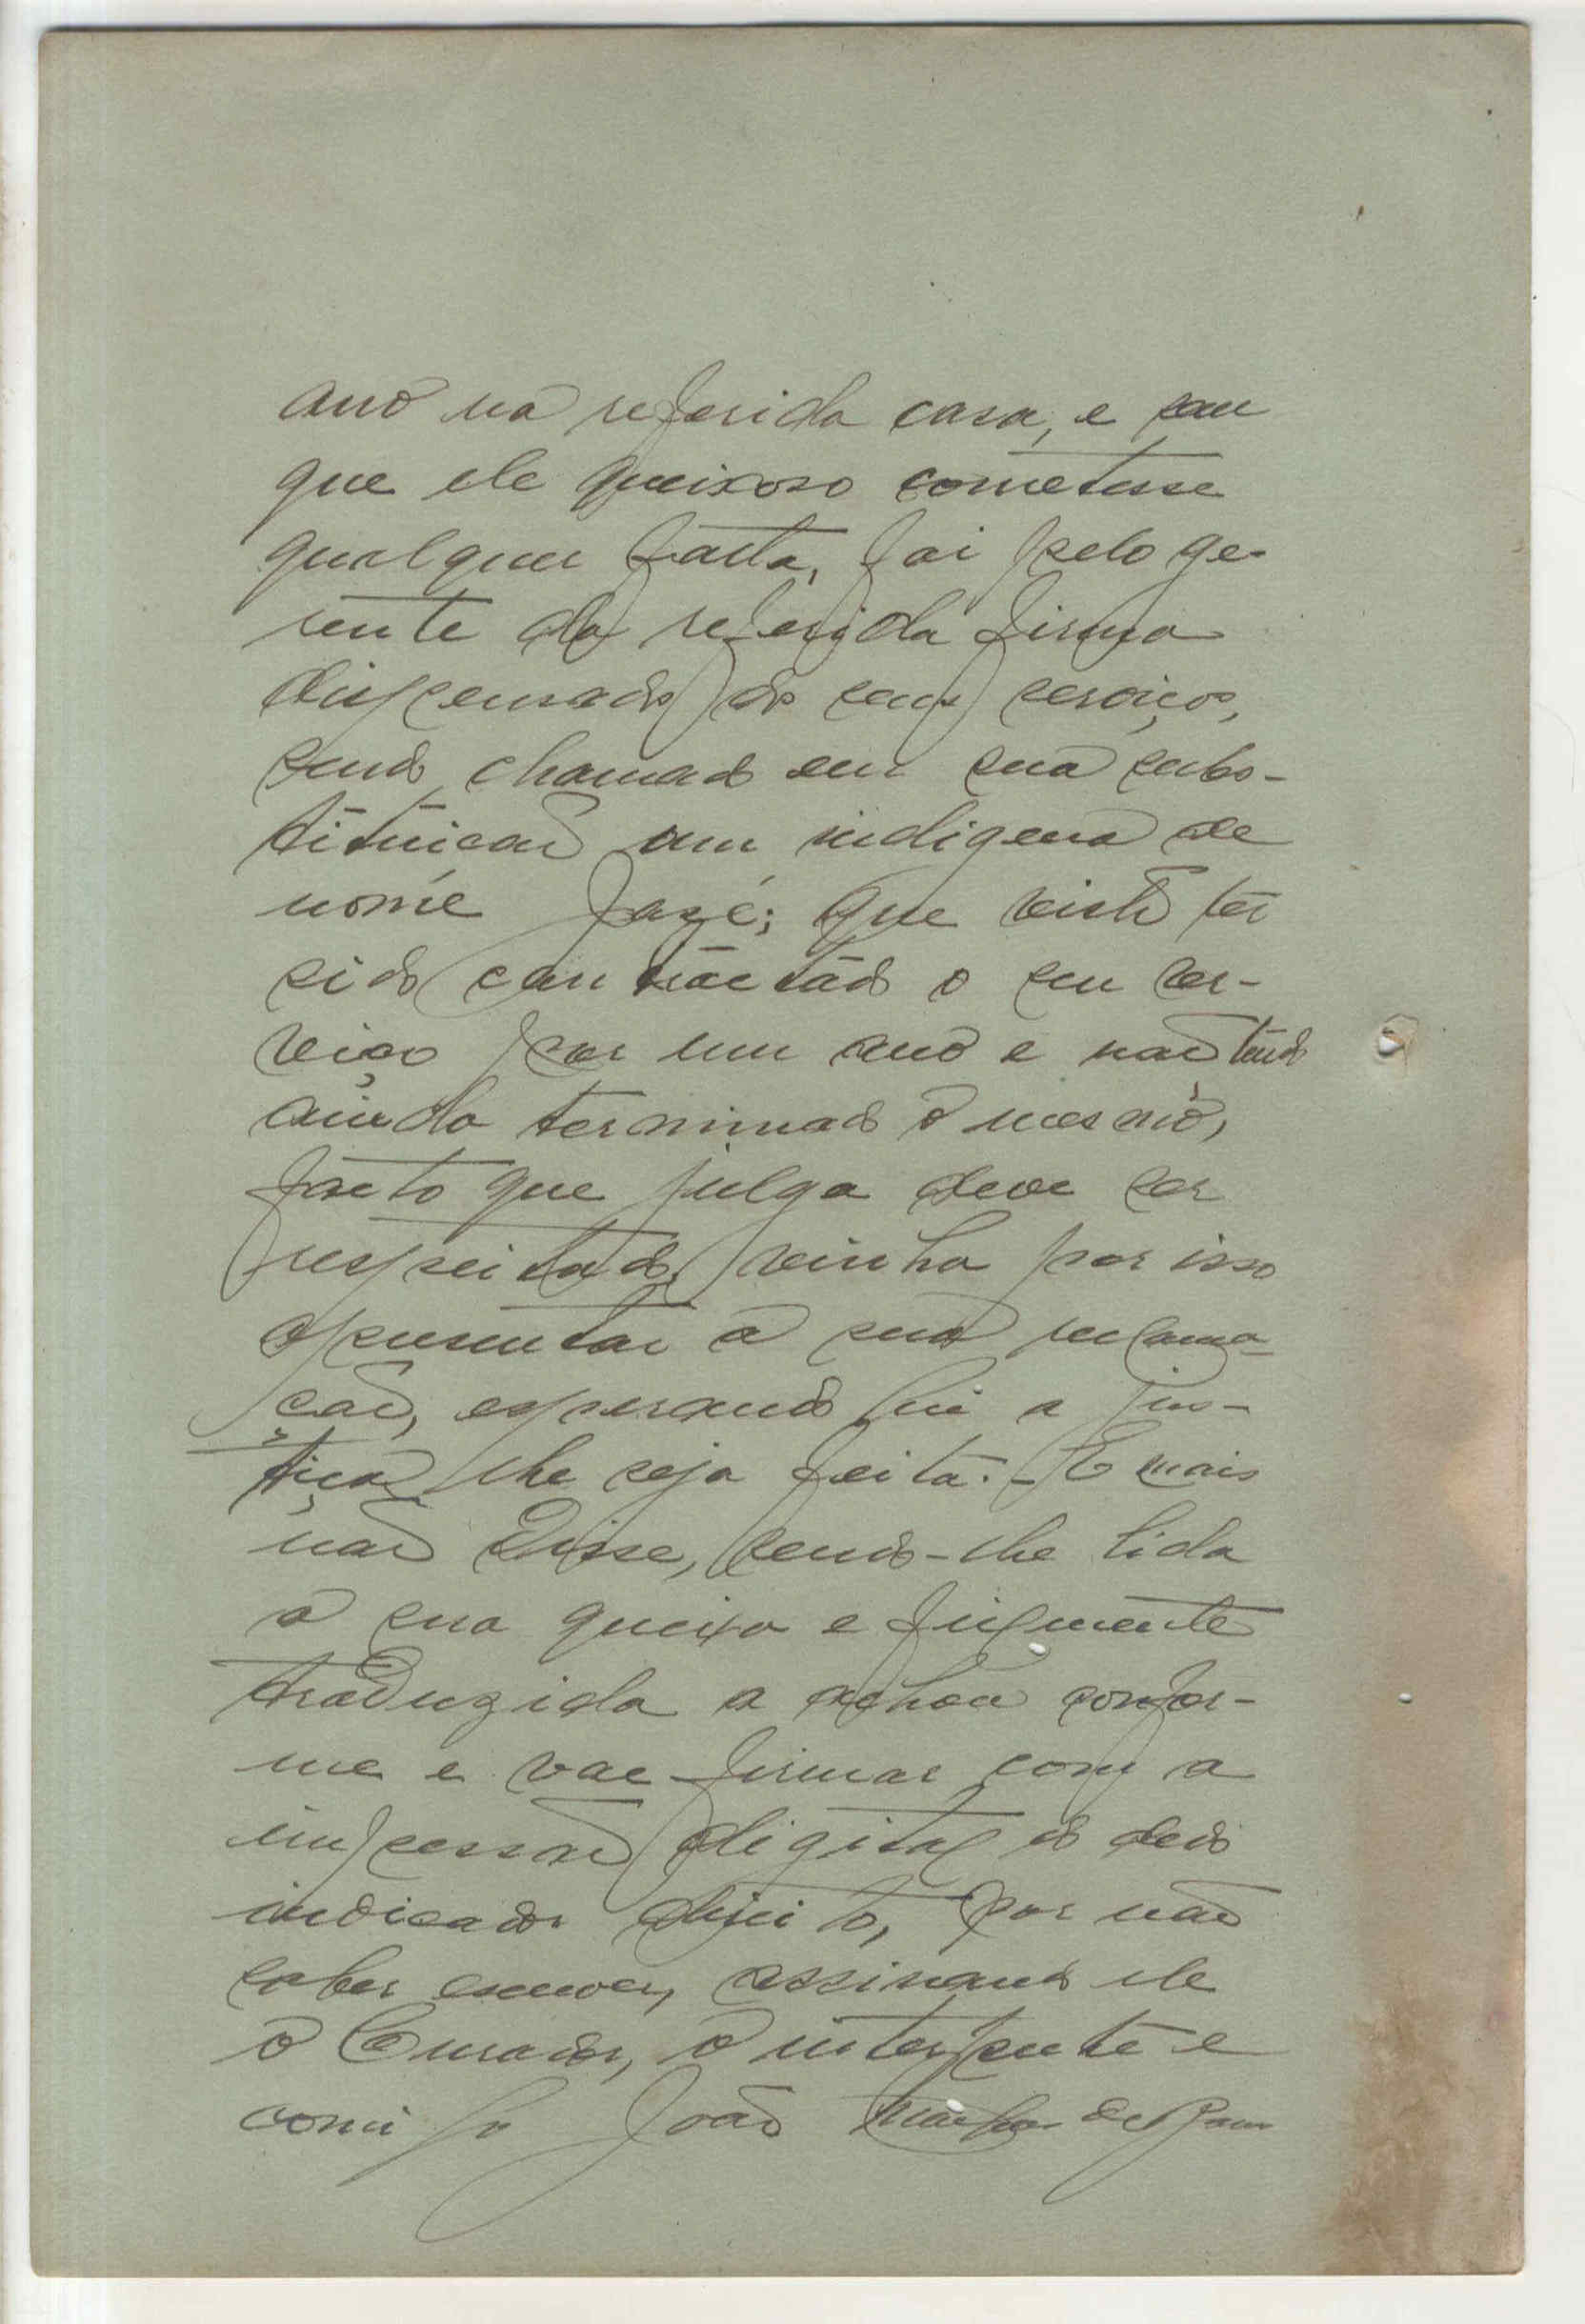 ano na referida casa, e sem
que ele queixoso cometesse
qualquer falta, foi pelo ge-
rente da referida firma
dispensado dos seus serviços,
sendo chamado em sua subs-
tituicão um indigena de
nome José; que visto ter
sido contractado o seu ser-
viço por um ano e não tendo
ainda terminado o mesmo,
facto que julga deve ser
respeitado, vinha por isso
apresentar a sua reclama-
ção, esperando que a jus-
tiça lhe seja feita. - E mais
não disse, sendo-lhe lida
a sua queixa e fielmente
traduzida a achou confor-
me e vae firmar com a
impressão digital do dedo
indicador direito, por não
saber escrever, assinando ele
o Curador, o interprete e
comigo João de